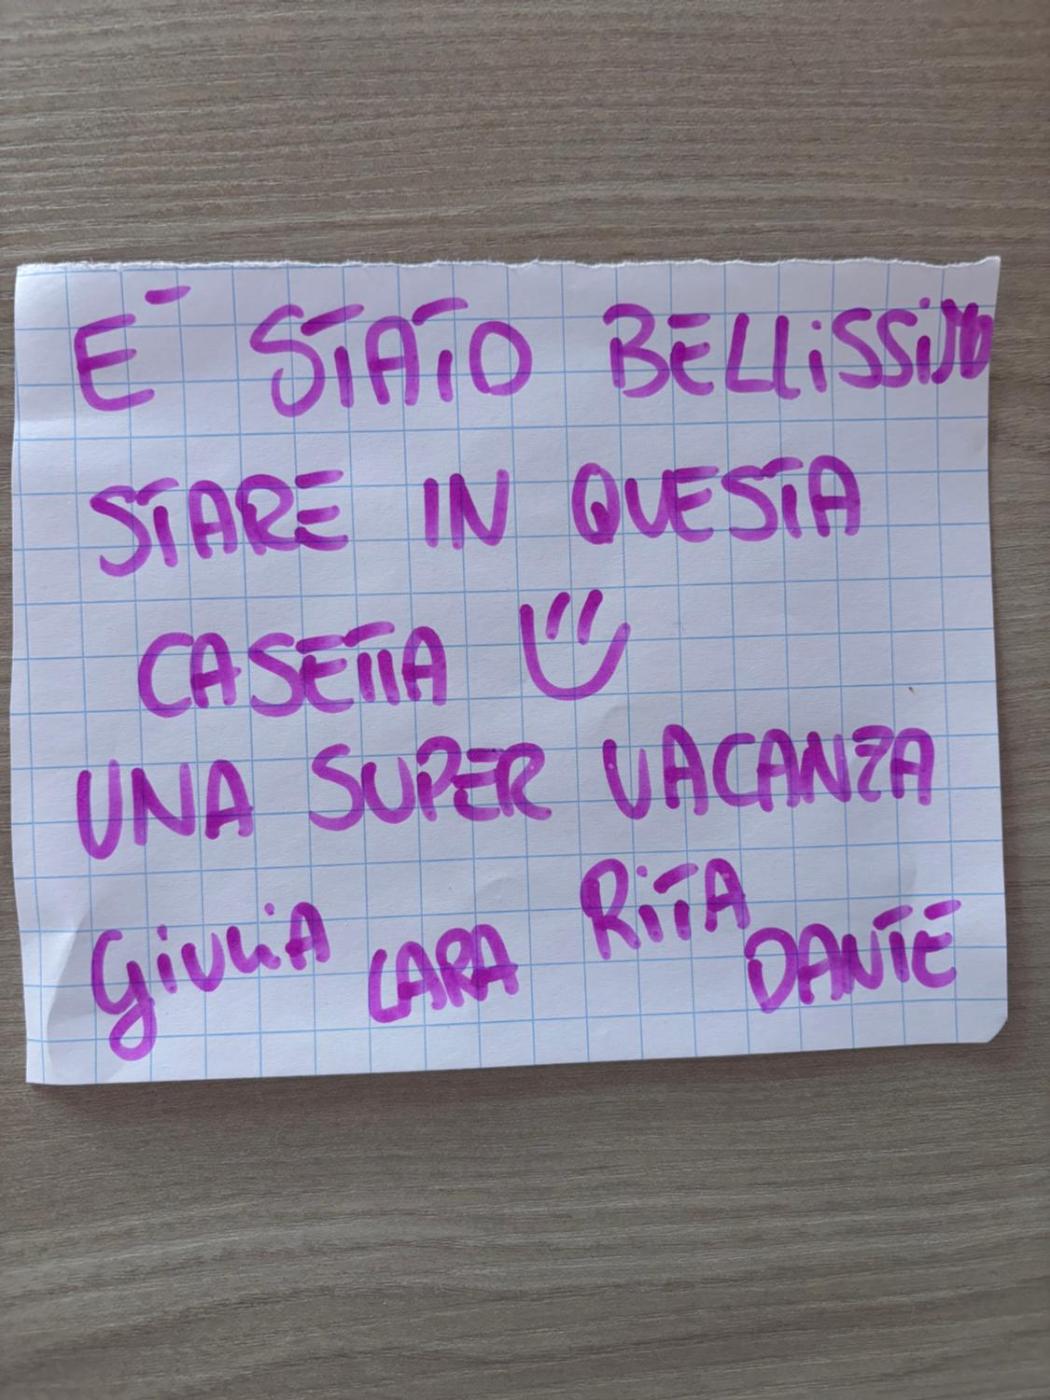 È STATO BELLiSSiMO
STARE IN QUESTA
CASETTA
UNA SUPER VACANZA
GiULiA LARA RiTA DANTE